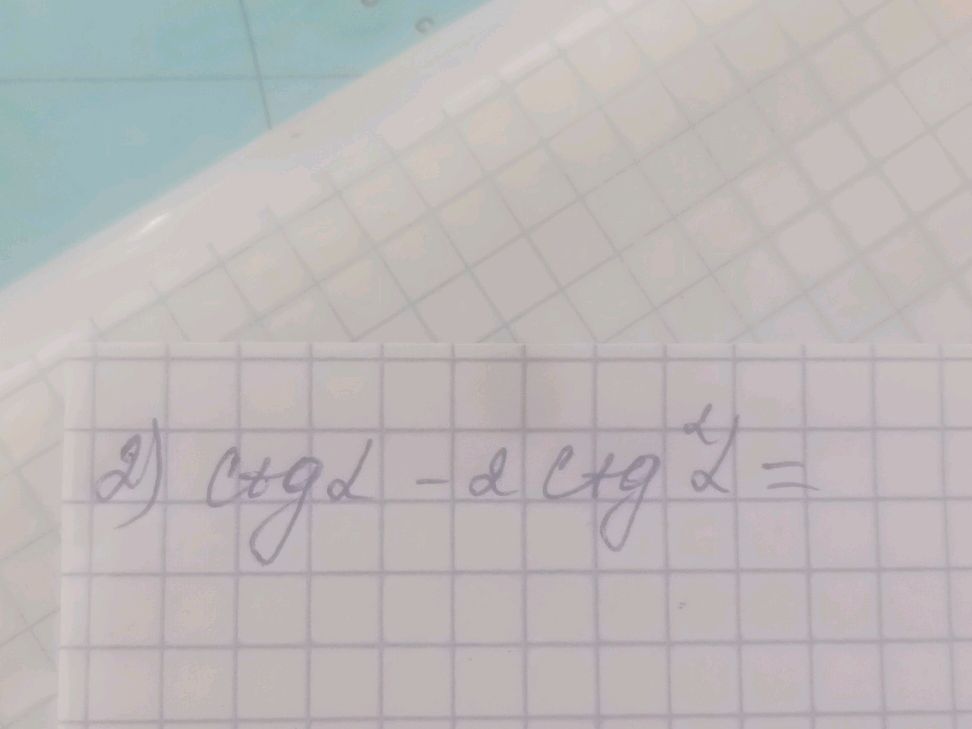 2) ctg α - 2 ctg² α =